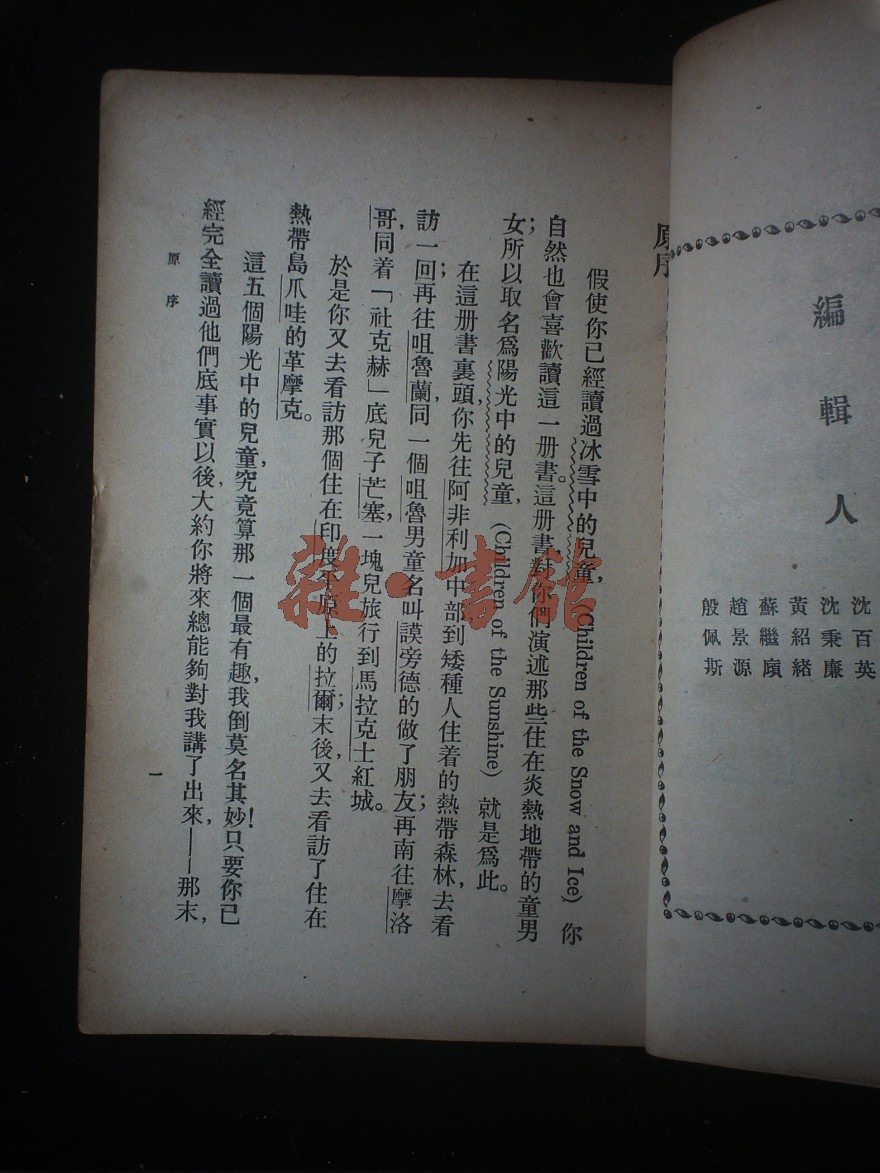 編輯人
沈百英
沈秉廉
黃紹緒
蘇繼廎
趙景源
殷佩斯
原序
假使你已經讀過冰雪中的兒童，(Children of the Snow and Ice) 你
自然也會喜歡讀這一册書。這册書對你們演述那些住在炎熱地帶的童男
女；所以取名爲陽光中的兒童，(Children of the Sunshine) 就是爲此。
在這册書裏頭，你先往阿非利加中部到矮種人住着的熱帶森林，去看
訪一回；再往咀魯蘭，同一個咀魯男童名叫謨旁德的做了朋友；再南往摩洛
哥，同着「社克赫」底兒子芒塞，一塊兒旅行到馬拉克士紅城。
於是你又去看訪那個住在印度平原上的拉爾；末後，又去看訪了住在
熱帶島爪哇的革摩克。
這五個陽光中的兒童，究竟算那一個最有趣，我倒莫名其妙！只要你已
經完全讀過他們底事實以後，大約你將來總能夠對我講了出來——那末，
原序
一
雜·書館